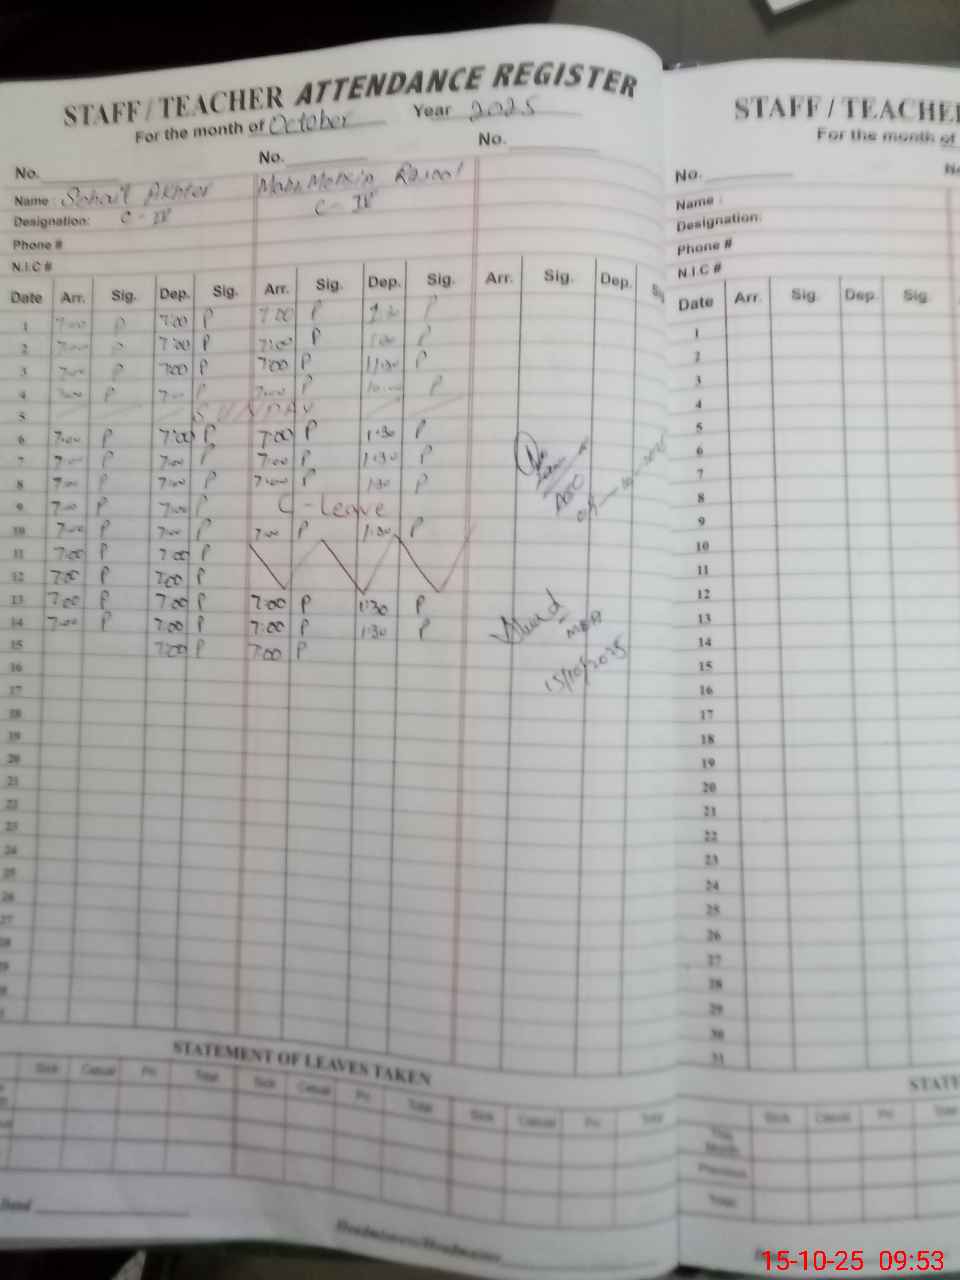 STAFF / TEACHER ATTENDANCE REGISTER
For the month of October Year 2025
No. No. No.
Name Sohail Akhter
Designation: C - IV C - IV
Phone #
N.I.C #
Date Arr. Sig. Dep. Sig. Arr. Sig. Dep. Sig. Arr. Sig. Dep.
1 7:00 P 7:00 P 7:00 P P
2 7:00 P 7:00 P 7:00 P P
3 7:00 P 7:00 P 7:00 P 11:30 P
4 7:00 P 7:00 P 7:00 P P
5 SUNDAY
6 7:00 P 7:00 P 7:00 P 1:30 P
7 7:00 P 7:00 P 7:00 P 1:30 P
8 7:00 P 7:00 P 7:00 P 1:30 P
9 7:00 P 7:00 P C - Leave
10 7:00 P 7:00 P 7:00 P 1:30 P
11 7:00 P 7:00 P
12 7:00 P 7:00 P
13 7:00 P 7:00 P 7:00 P 1:30 P
14 7:00 P 7:00 P 7:00 P 1:30 P
15 7:00 P 7:00 P
16
17
18
19
20
21
22
23
24
25
26
27
28
29
MEA
15/10/2025
STATEMENT OF LEAVES TAKEN
Sick Casual Pri Total Sick Casual Pri Total Sick Casual Pri Total
Headmistress/Headmaster
STAFF / TEACHE
For the month of
No.
Name :
Designation:
Phone #
N.I.C #
Date Arr. Sig. Dep. Sig.
1
2
3
4
5
6
7
8
9
10
11
12
13
14
15
16
17
18
19
20
21
22
23
24
25
26
27
28
29
30
31
STATE
Sick Casual Pri Total
This Month
Previous
Total
15-10-25 09:53